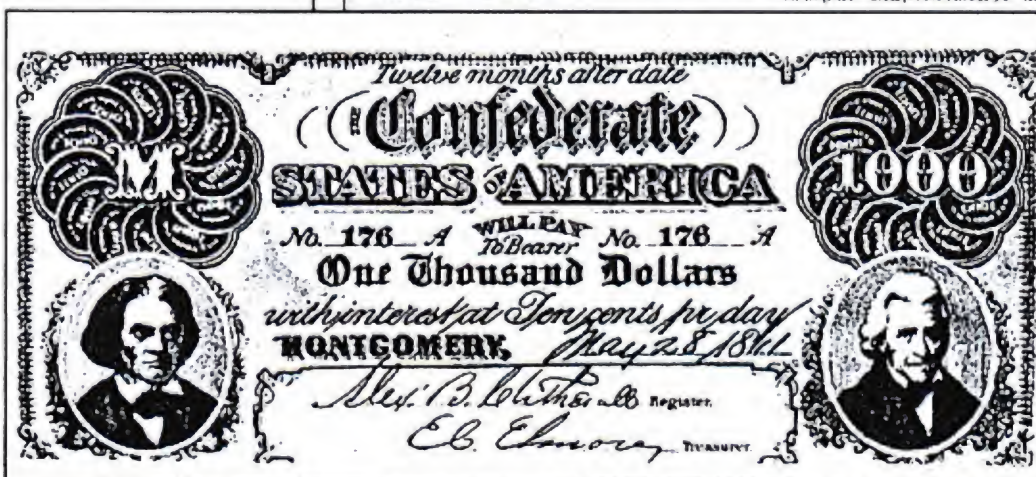 Twelve months after date
THE Confederate
STATES OF AMERICA
M
1000
No. 176 A WILL PAY To Bearer No. 176 A
One Thousand Dollars
with interest at Ten cents pr day
MONTGOMERY, May 28 1861
Alex. B. Clitherall Register.
E.C. Elmore, Treasurer.